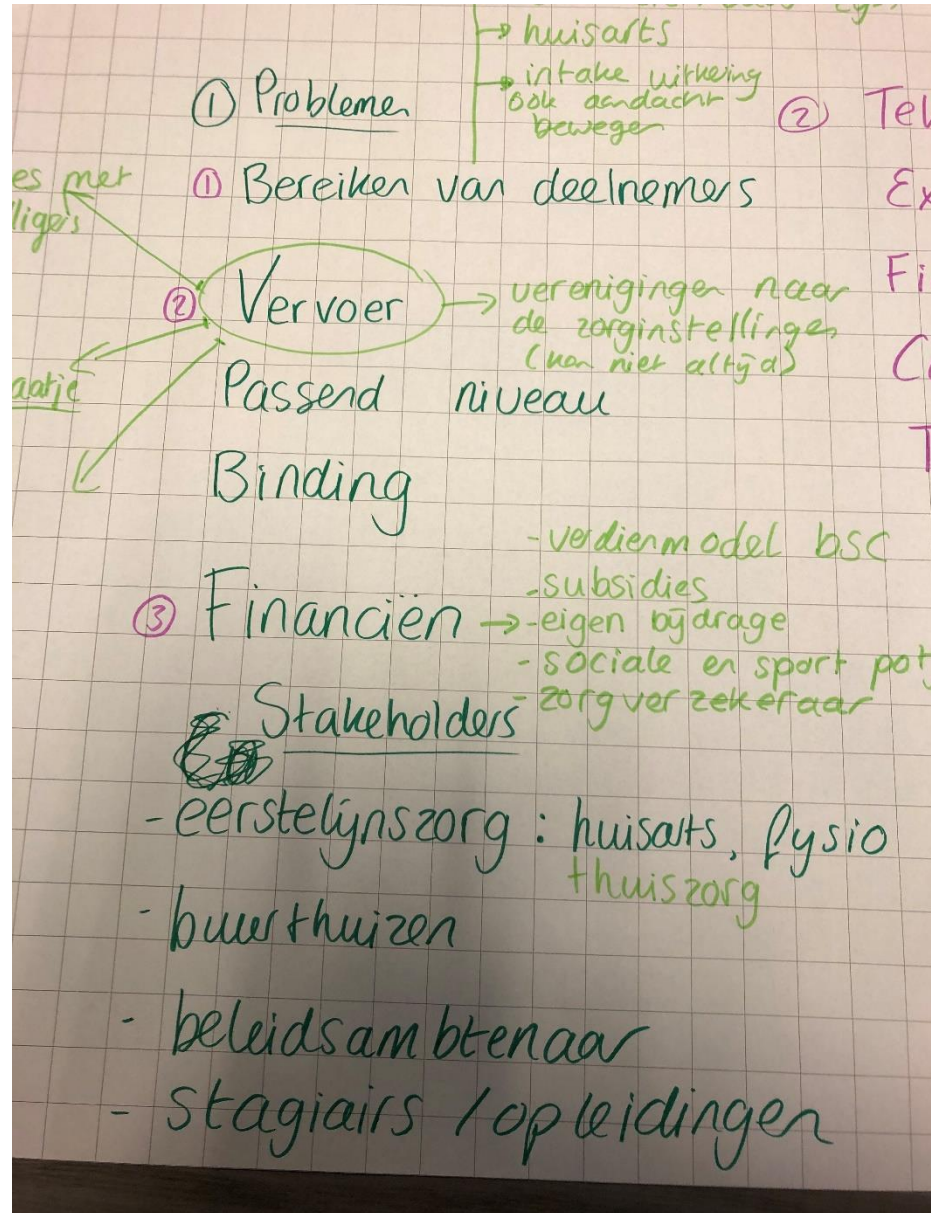 → huisarts
→ intake uitkering
ook aandacht
bewegen
① Problemen
② Tel
es met
ligers
① Bereiken van deelnemers
Ex
② Vervoer → verenigingen naar
de zorginstellingen
(kan niet altijd)
Fi
aatje
Passend niveau
Binding
- verdienmodel bsc
- subsidies
③ Financiën → - eigen bijdrage
- sociale en sport pot
- zorgverzekeraar
Stakeholders
- eerstelijnszorg : huisarts, fysio
thuiszorg
- buurthuizen
- beleidsambtenaar
- stagiairs / opleidingen